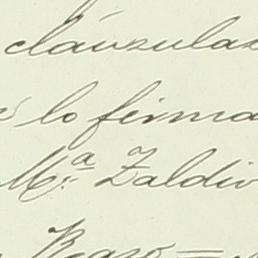 cláuzulas
lo firma
Mª Zaldiv